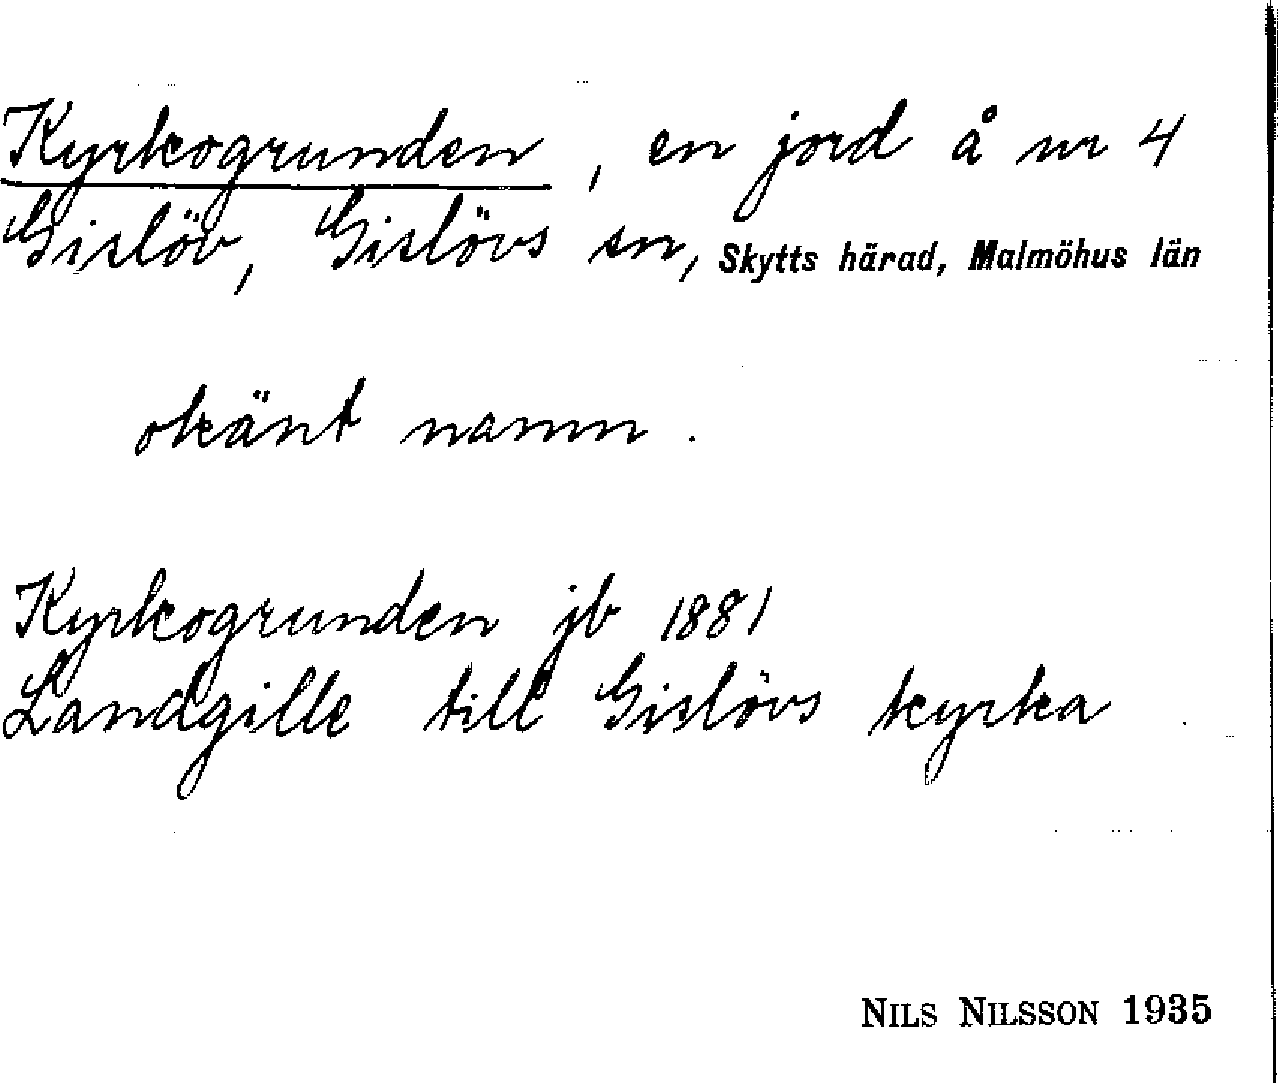 Kyrkogrunden, en jord å nr 4
Gislöv, Gislövs sn, Skytts härad, Malmöhus län
okänt namn.
Kyrkogrunden jb 1881
Landgille till Gislövs kyrka
NILS NILSSON 1935